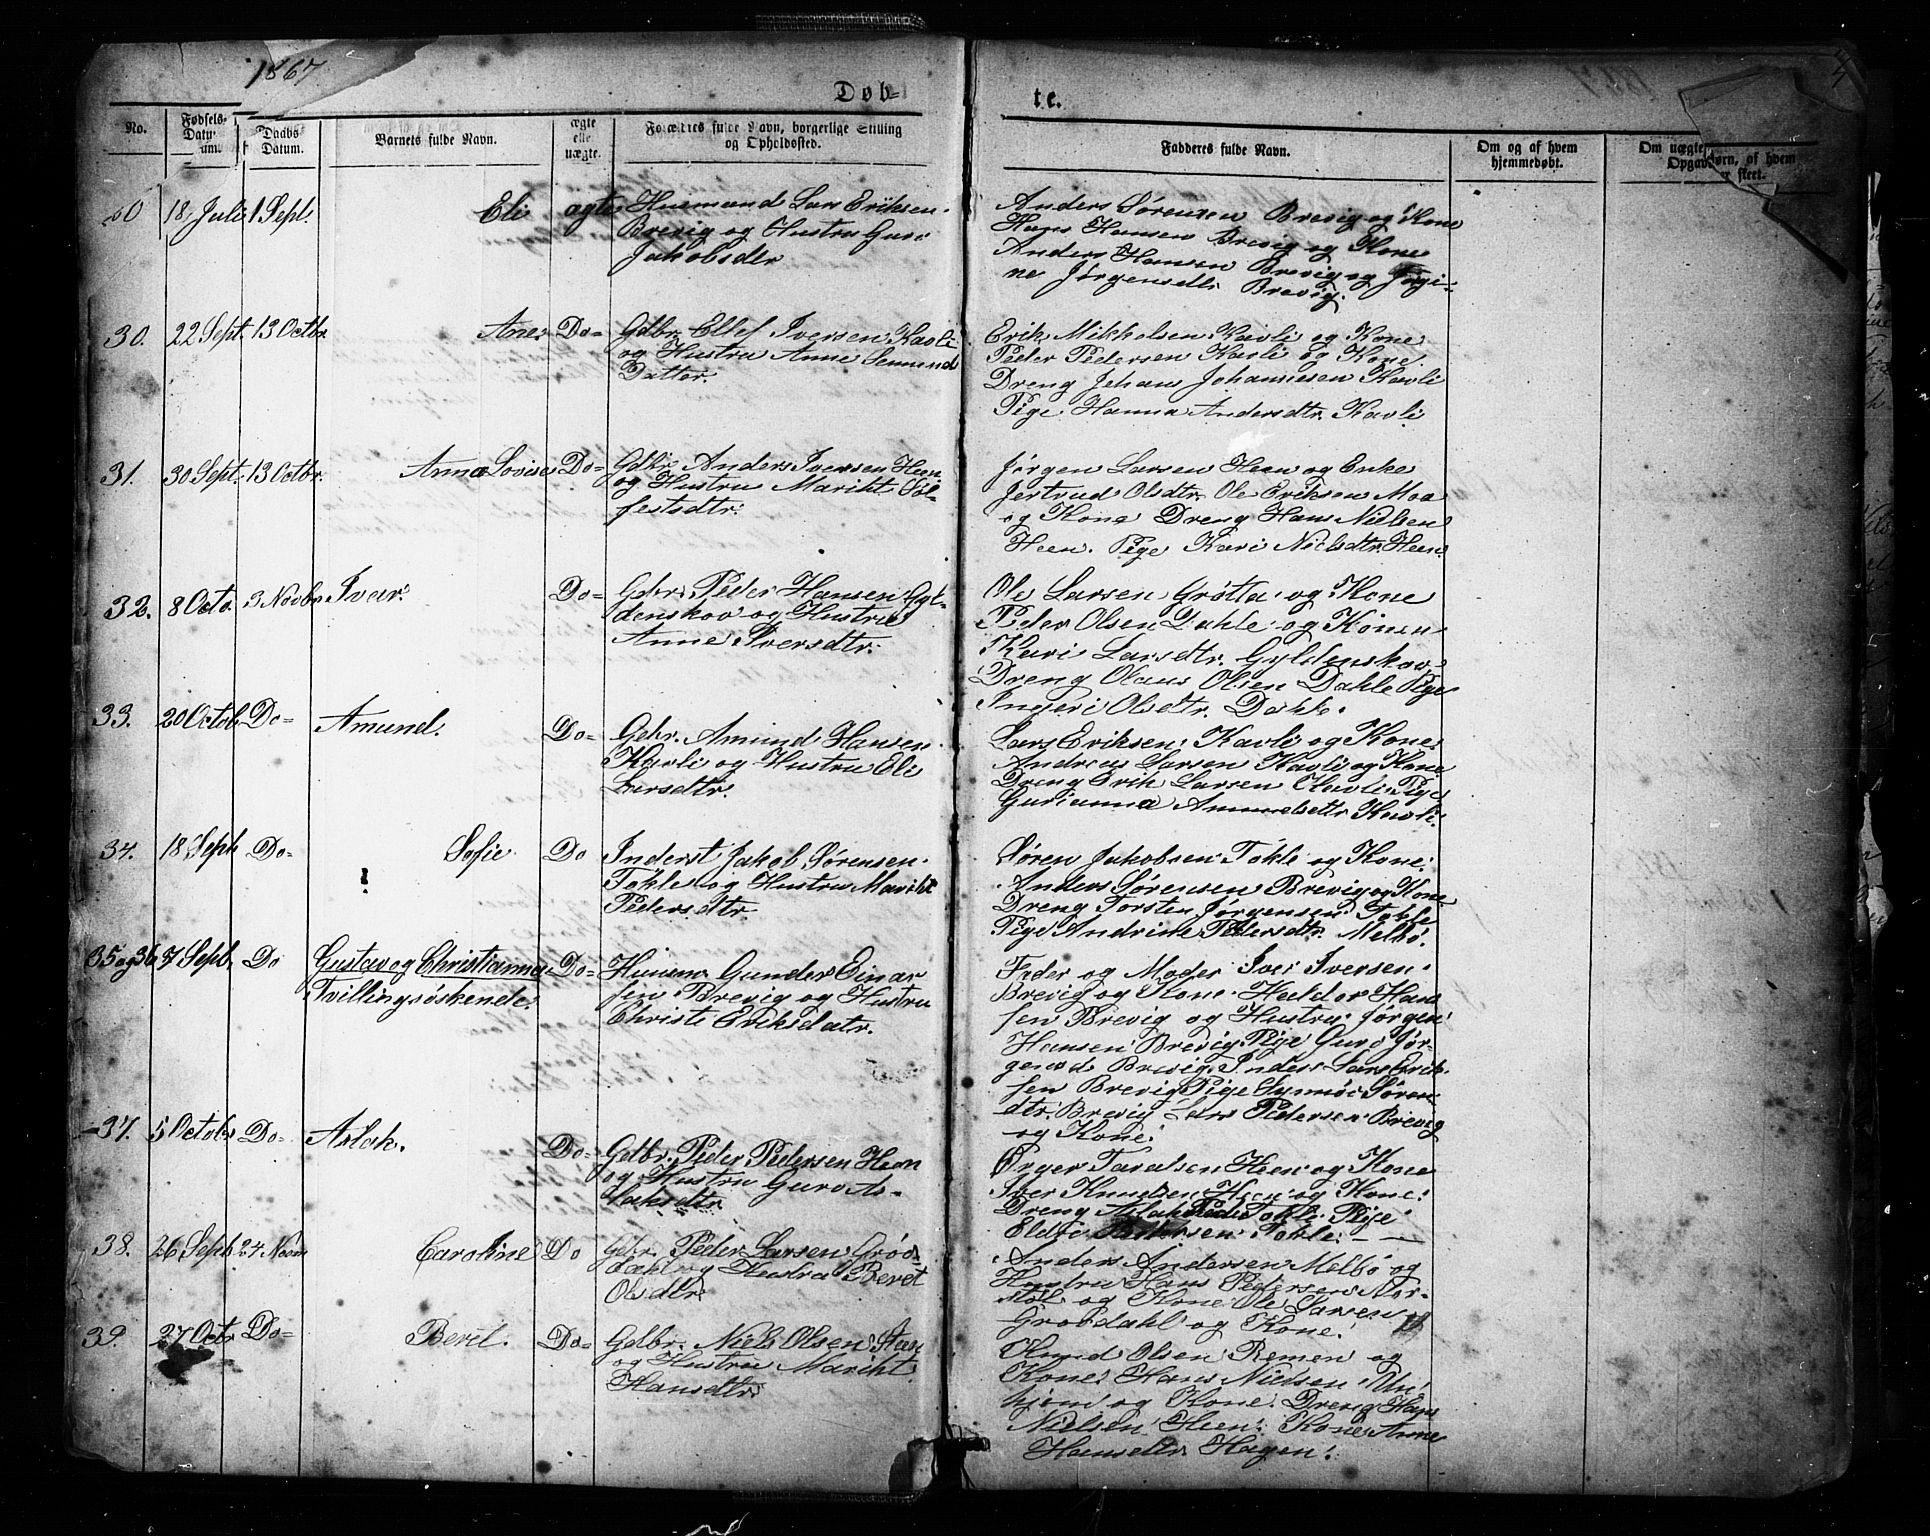 1867
Døb-
te.
No.
Fødsels-
Datum.
Daabs
Datum.
Barnets fulde Navn.
ægte
elle
uægte.
Forældres fulde Navn, borgerlige Stilling
og Opholdssted.
Fadderes fulde Navn.
Om og af hvem
hjemmedøbt.
Om uægte
Opgav
børn, af hvem
r skeet.
18 Juli 1 Sept. Eli ægte Huusmand Lars Eriksen
Brevig og Hustru Guri
Jakobsdtr
Anders Sørensen Brevig og Kone
Hans Hansen Brevig og Kone
Anders Hansen Brevig og Jørgi-
ne Jørgensdtr. Brevig.
30. 22 Sept. 13 Octbr. Ane Do- Gdbr. Ellef Iversen Kavli
og Hustru Anne Semund
Datter.
Erik Mikkelsen Kavli og Kone
Peder Pedersen Kavli og Kone
Dreng Johans Johannesen Kavli
Pige Hanna Andersdtr. Kavli
31. 30 Sept. 13 Octbr. Anna Lovise Do- Gdbr. Anders Iversen Heen
og Hustru Mariht Søl-
festsdtr.
Jørgen Larsen Heen og Enke
Jertrud Olsdtr. Ole Eriksen Moa
og Kone Dreng Hans Nielsen
Heen. Pige Kari Nielsdtr. Heen
32. 8 Octo. 3 Novbr Ivar. Do- Gebr. Peder Hansen Gyl-
denskov og Hustru
Anne Iversdtr.
Ole Larsen Grøtta og Kone
Peder Olsen Dahle og Konen
Kari Larsdtr. Gyldenskov
Dreng Olaus Olsen Dahle Pige
Ingeri Olsdtr. Dahle.
33. 20 Octob. Do- Amund. Do- Gebr. Amund Hansen
Kavli og Hustru Eli
Larsdtr.
Lars Eriksen Kavli og Kone
Andreas Larsen Kavli og Kone
Dreng Erik Larsen Kavli Pige
Gurianna Amundsdtr Kavli.
34. 18 Sept Do- Sofie Do Inderst Jakob Sørensen
Tokle og Hustru Mariht
Pedersdtr.
Søren Jakobsen Tokle og Kone
Anders Sørensen Brevig og Kone
Dreng Torsten Jørgensen Tokle
Pige Andrine Pedersdtr. Melbø.
35 og 36 7 Sept. Do Gustav og Christianna Do- Gunder Einar
sen Brevig og Hustru
Tvillingsøskende.
Christi Eriksdatr.
Fader og Moder Iver Iversen
Brevig og Kone. Haldor Han
sen Brevig og Hustru Jørgen
Hansen Brevig Pige Guro Jør-
gensd Brevig. Inders Lars Erik
sen Brevig Pige Synnøv Søren
dtr. Brevig Lars Pedersen Brevig
og Kone.
37. 5 Octobr Do- Aslak. Do- Gdbr. Peder Pedersen Heen
og Hustru Guro As-
laksdtr
Taralsen Heen og Kone
Iver Knudsen Heen og Kone.
Dreng Aslak Tokle. Pige
Tokle. —
38. 26 Sept 24 Novm Caroline Do Gdbr. Peder Larsen Grøv-
dahl og Hustru Beret
Olsdtr.
Anders Andersen Melbø og
Hustru Hans Pedersen Nor-
støl og Kone Ole Larsen
Grøvdahl og Kone.
39. 27 Octr Do- Beril. Do- Gdbr. Niels Olsen Heen
og Hustru Mariht
Hansdtr.
Knud Olsen Remen og
Kone Hans Nielsen Un-
hjem og Kone. Dreng Hans
Nielsen Heen. Kone Anne
Hansdtr Hagen.